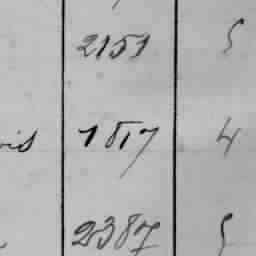 2151 5
1817 4
2387 5